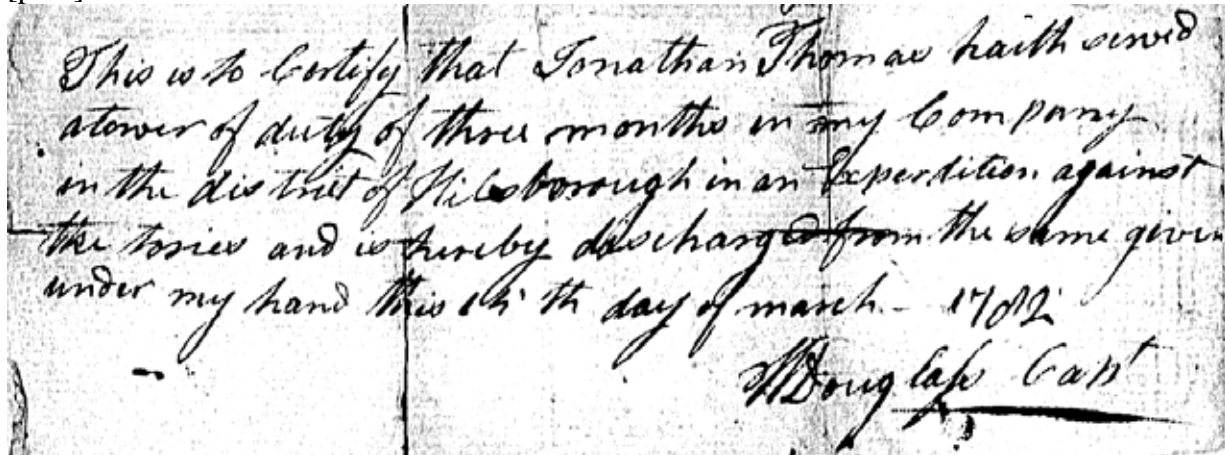 This is to Certify that Jonathan Thomas haith served
atower of duty of three months in my Company
in the district of Hilesborough in an Experdition against
the tories and is hereby discharged from the same given
under my hand this th day of march - 1782
Douglass Capt